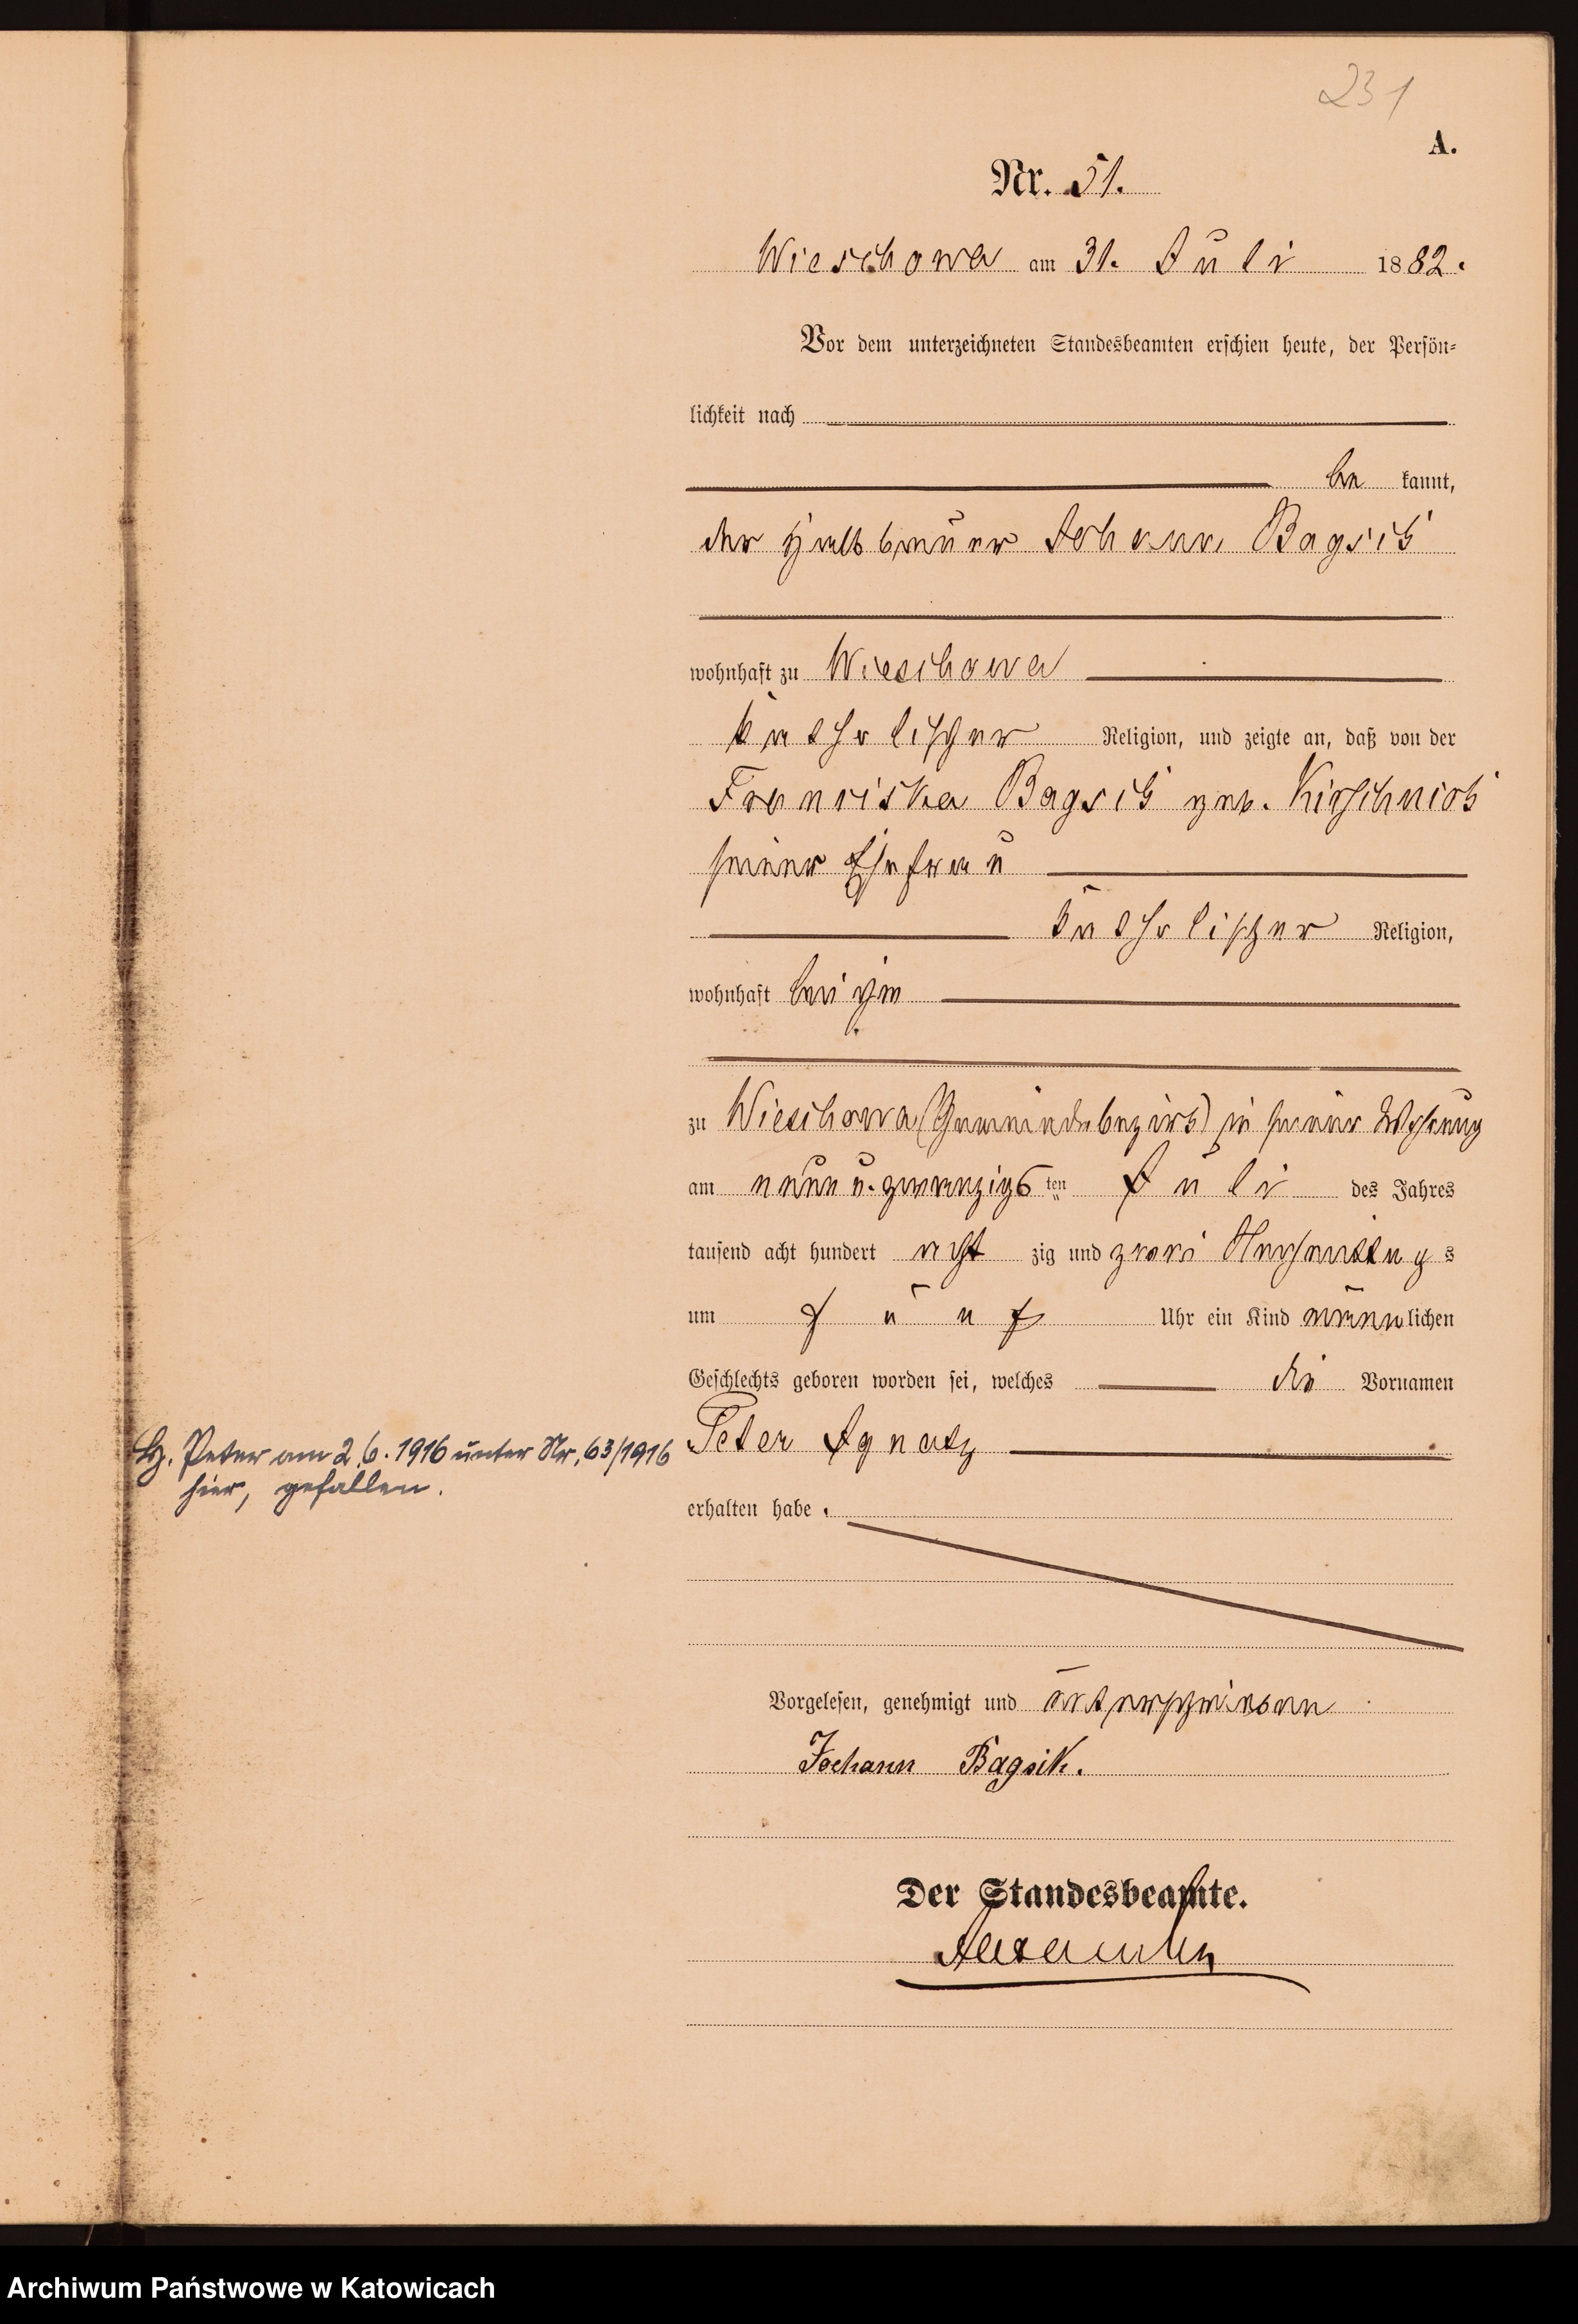 231
A.
Nr. 51.
Wieschowa am 31. Juli 1882.
Vor dem unterzeichneten Standesbeamten erschien heute, der Persön-
lichkeit nach
be kannt,
der Halbbauer Johann Bagsik
wohnhaft zu Wieschowa
katholischer Religion, und zeigte an, daß von der
Franziska Bagsik geb. Kirschniok
seiner Ehefrau
katholischer Religion,
wohnhaft bei ihm
zu Wieschowa (Gemeindebezirk) in seiner Wohnung
am neun u. zwanzigsten Juli des Jahres
tausend acht hundert acht zig und zwei Nachmittags
um fünf Uhr ein Kind männlichen
Geschlechts geboren worden sei, welches die Vornamen
Peter Ignatz
erhalten habe.
Peter am 2.6.1916 unter Nr. 63/1916
hier, gefallen.
Vorgelesen, genehmigt und unterschrieben
Johann Bagsik.
Der Standesbeamte.
Archiwum Państwowe w Katowicach